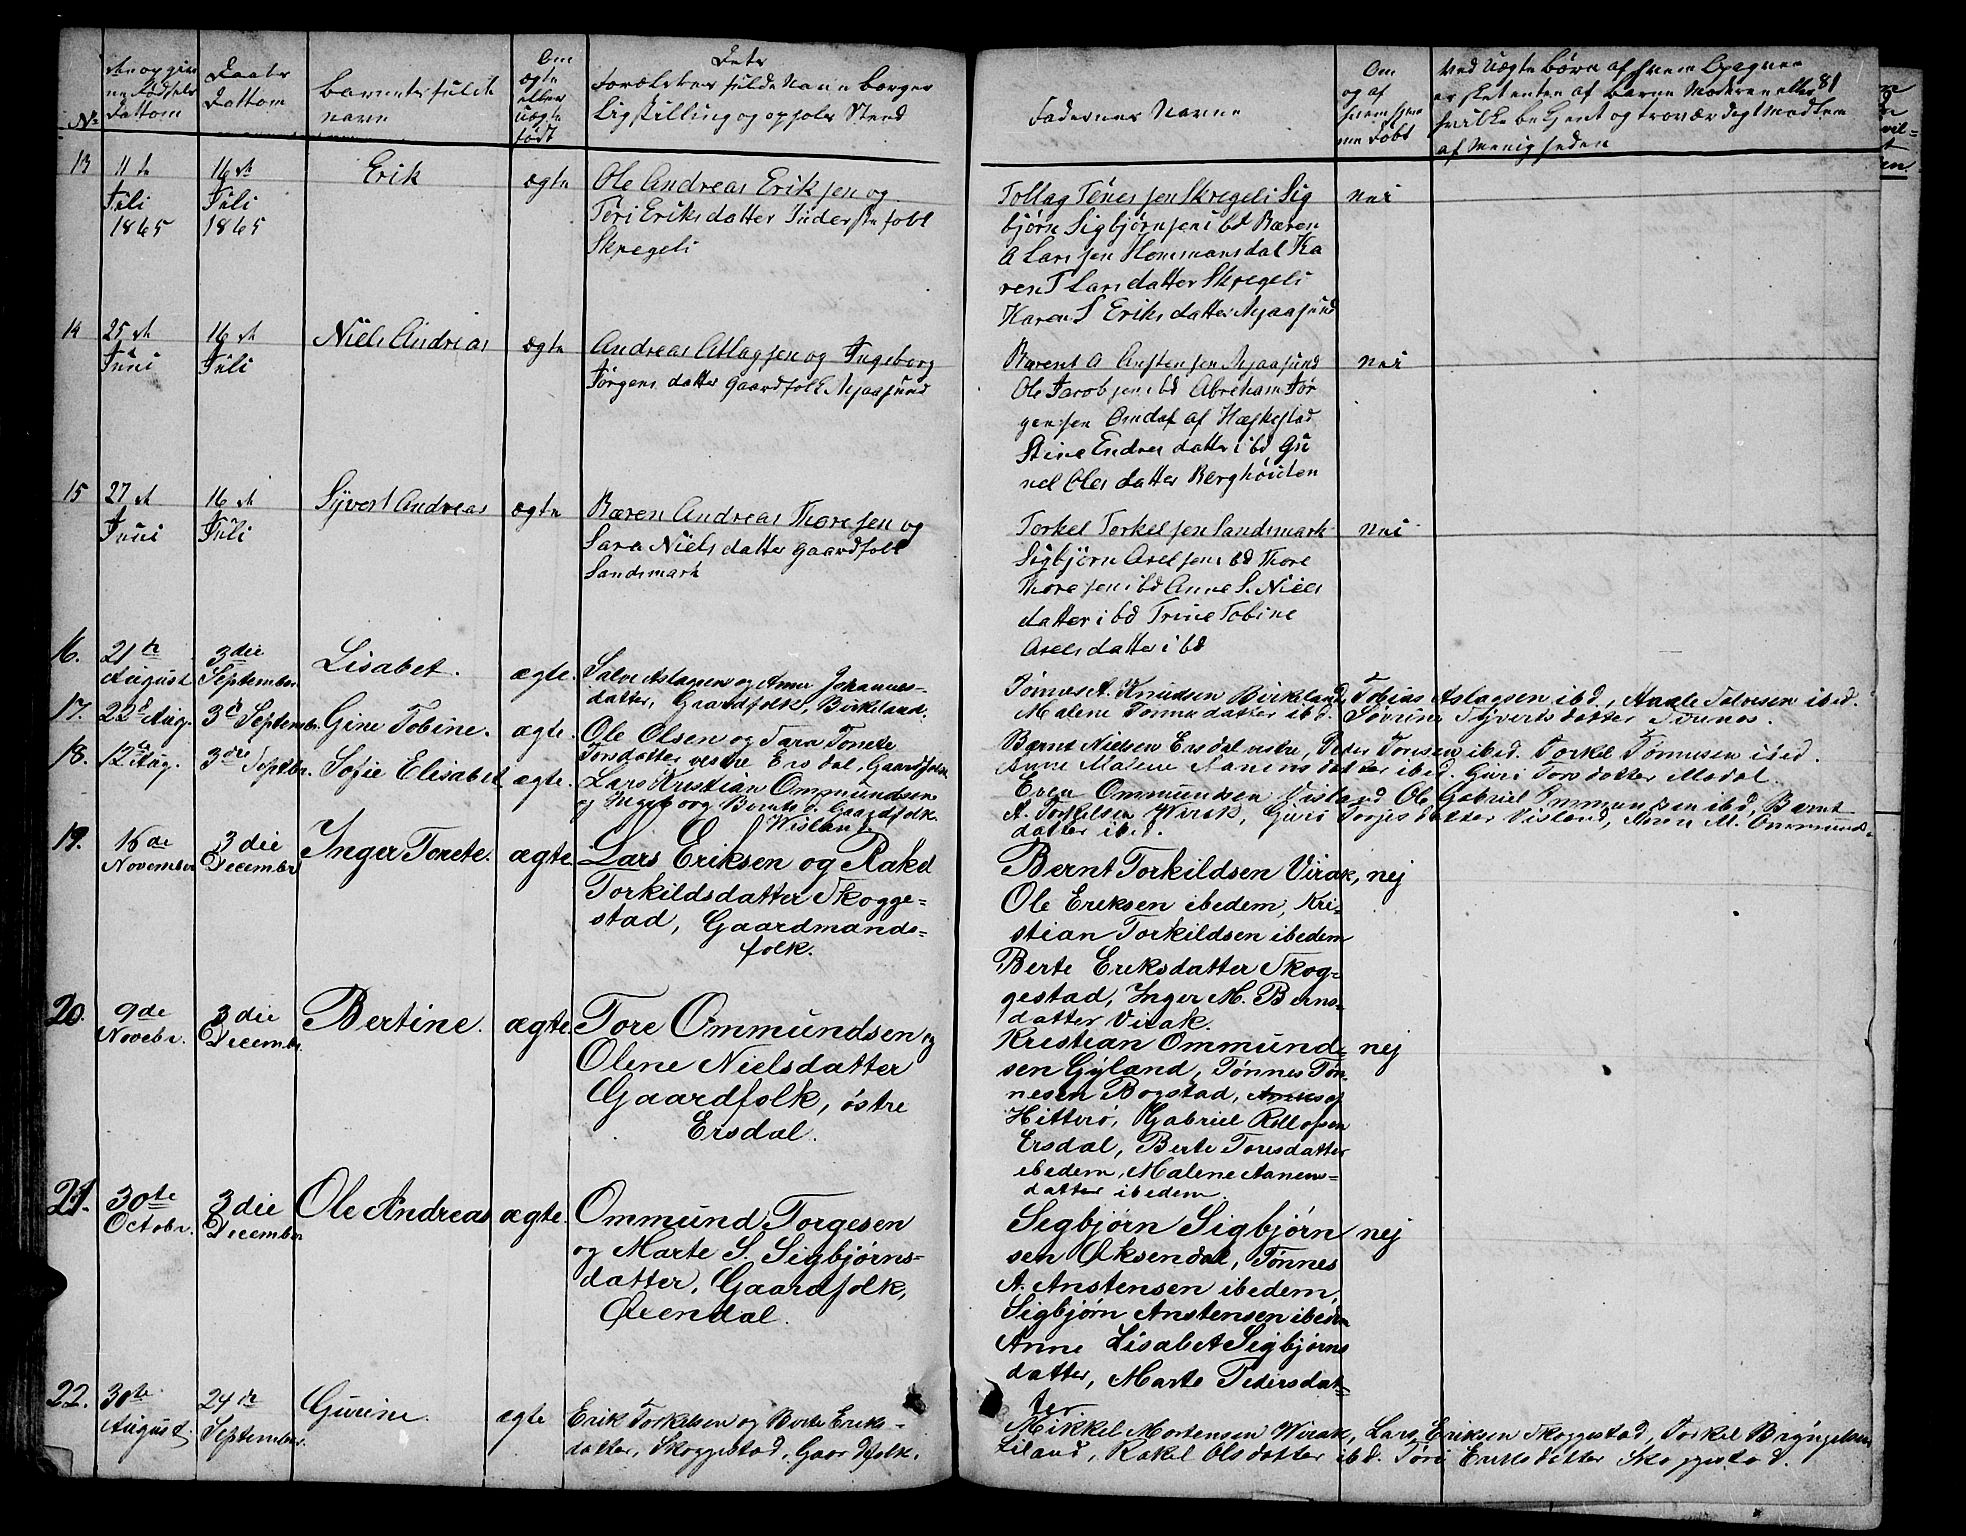 81
No
Daabs
Dattom
Barnets fulde
navn
Om
ægte
eller
uægte
født
Faderens Navne
Om
og af
13
11te
Juli
1865
16de
Juli
1865
Erik
ægte
Ole Andreas Eriksen og
Eriksdatter
Skregeli
Skregeli Sig
bjørn Sigbjørnsen ibd Bæren
A Larssen Hommansdal Ka
ren T Larsdatter Skregeli
Karen S Eriksdatter Mjaasund
nei
14
25de
Juni
16de
Juli
Niels Andreas
ægte
Andreas Atlagsen og Ingeborg
Jørgensdatter Gaardfolk Mjaasund
Berent A Anstensen Mjaasund
Ole Jacobsen ibd Abreham Jør
gensen Omdal af Hæskestad
Stine Endresdatter ibd Gu
nel Olesdatter Berghouten
nei
15
27de
Juni
16de
Juli
Syvert Andreas
ægte
Bæren Andreas Thoresen og
Sara Nielsdatter Gaardfolk
Sandsmark
Torkel Torkelsen Sandsmark
Sigbjörn Axelsen ibd Thore
Thoresen ibd Anne S. Niels
datter ibd Trine Tobine
Axelsdatter ibd
nei
16.
21de
August
3die
September
Lisabet.
ægte.
Salve Aslagsen og Anne Johannes-
datter, Gaardfolk, Birkeland.
Tønnes A. Knudsen Birkeland, Tobias Aslagsen ibd., Aanle Salvesen ibed.
Malene Tønnesdatter ibd. Sørine Syvertsdatter
17.
22de Aug.
3die Septembr.
Gine Tobine.
ægte.
Ole Olsen og Sara Tonete
Torsdatter vestre Ersdal, Gaardfolk
Bernt Nielsen Ersdal vestre, Peder Toresen ibed. Torkel Tønnesen ibed.
Anne Malene Aanensdatter ibed. Guri Torsdatter Modal.
18.
12te Aug.
3die Septbr.
Sofie Elisabet
ægte.
Lars Kristian Ommundsen
og Ingeborg Berntsd. Gaardfolk.
Wisland.
Even Ommundsen Visland Ole Gabriel Ommundsen ibd, Bernt
A. Torkelsen Wirak, Guri Torjesdatter Visland, Anne M. Ommunds-
datter ibed.
19.
16de
November
3die
December
Inger Tonete.
ægte.
Lars Eriksen og Rakel
Torkildsdatter Skogge-
stad, Gaardmands-
folk.
Bernt Torkildsen Virak,
Ole Ereksen ibedem, Kri-
stian Torkildsen ibedem
Berte Ereksdatter Skog-
gestad, Inger M. Berns-
datter Virak.
nej
20.
9de
Novebr.
3die
Decembr
Bertine.
ægte.
Tore Ommundsen og
Olene Nielsdatter
Gaardfolk, østre
Ersdal.
Kristian Ommund-
sen Gyland, Tønnes Tøn-
nesen Bogstad, Annexs af
Hitterø, Gabriel Rollofsen
Ersdal, Berte Toresdatter
ibedem, Malene Aanens-
datter ibedem.
nej
21.
30te
Octobr.
3die
December
Ole Andreas
ægte.
Ommund Torgesen
og Marte S. Sigbjørns-
datter, Gaardfolk,
Øxendal.
Sigbjørn Sigbjørn
sen Øksendal, Tønnes
A. Anstensen ibedem,
Sigbjørn Anstensen ibedem
Anne Lisabet Sigbjørns
datter, Marte Pedersdat-
ter.
nej
22.
30te
August.
24de
September.
Gurine.
ægte
Erik Torkelsen og Berte Eriks-
datter, Skoggestad, Gaardfolk.
Mikkel Mortensen Wirak, Lars Eriksen Skoggestad, Torkel Bryngelsen
Liland, Rakel Olsdatter ibd. Tøri Eriksdatter Skoggestad.